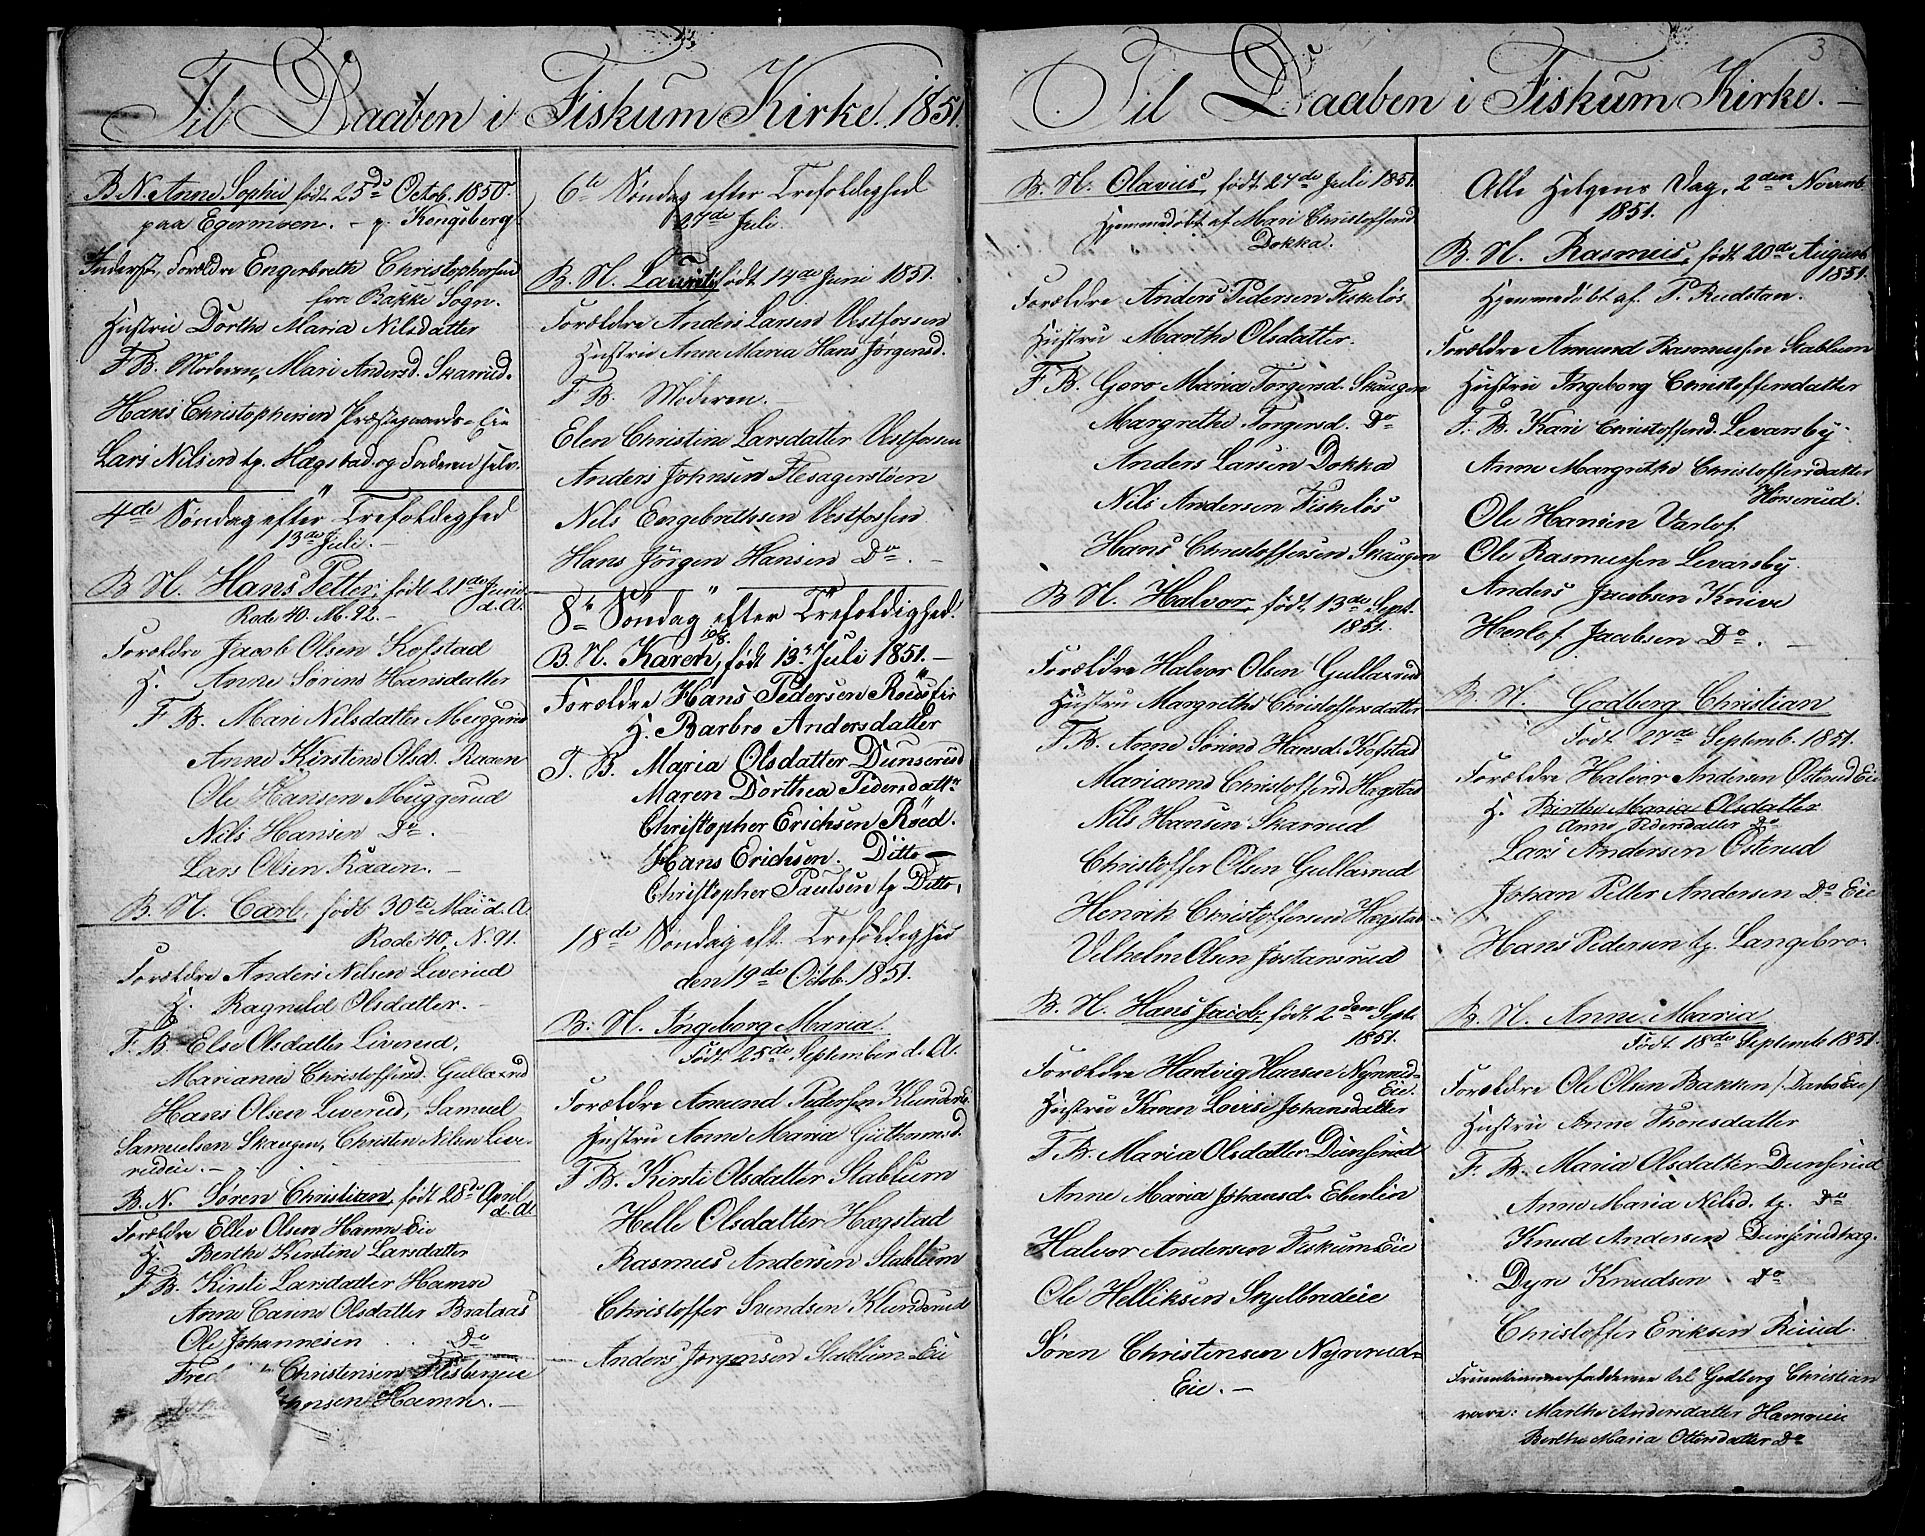 Til Daaben i Fiskum Kirke. 1851.
B. N. Anne Sophie født 25de Octob. 1850
paa Egermoen. - p. Kongsberg
Inderst, Forældre Engerbreth Christophersen
fra Bakke Sogn.
Hustru Dorthe Maria Nilsdatter
F. B. Moderen, Mari Andersd. Skarrud.
Hans Christophersen Præstegaards-Eie
Lars Nilsen tp. Hægstad og Faderen selv.
4de Søndag efter Trefoldighed
13de Juli. -
B. N. Hans Petter, født 21de Juni
d. A.
Rode 40. No. 92. -
Forældre Jacob Olsen Kofstad
H. Anne Sørine Hansdatter
F. B. Mari Nilsdatter Muggerud
Anne Kirstene Olsd. Raaen
Ole Hansen Muggerud
Nils Hansen Do.
Lars Olsen Raaen. -
B. N. Carl, født 30te Mai d. A.
Rode 40, N. 91.
Forældre Anders Nilsen Liverud
H. Ragnild Olsdatter. -
F. B. Else Olsdatter Liverud,
Marianne Christoffersd. Gullaxrud
Hans Olsen Liverud, Samuel
Samuelsen Skaugen, Christen Nilsen Live-
rudeie. -
B. N. Søren Christian, født 28de April
d. A.
Forældre Ellev Olsen Hamre Eie
H. Berthe Kirstine Larsdatter
F. B. Kirsti Larsdatter Hamre
Anne Carine Olsdatter Brataas
Ole Johannesen Do
Fred Christensen Flesbergeie
Hansen Hamre. -
6te Søndag efter Trefoldighed
27de Juli.
B. N. Lauritz født 14de Juni 1851.
Forældre Anders Larsen Vestfossen
Hustru Anne Maria Hans Jørgensd.
F. B. Moderen. -
Elen Christine Larsdatter Vestfossen
Anders Johnsen Flesagerstøen
Nils Engebrethsen Vestfossen
Hans Jörgen Hansen Do. -
8de Søndag efter Trefoldighed.
10/8.
B. N. Karen, født 13de Juli 1851. -
Forældre Hans Pedersen Røed
H. Barbro Andersdatter
F. B. Maria Olsdatter Dunserud
Maren Dorthea Pedersdattr
Christopher Erichsen Röed.
Hans Erichsen. Ditto -
Christopher Paulsen tp Ditto.
18de Søndag eft. Trefoldighed
den 19de Octob. 1851.
B. N. Ingeborg Maria
Født 25de September d. A.
Forældre Amund Pedersen Klunderud
Hustru Anne Maria Guthormsd.
F. B. Kirsti Olsdatter Stablum
Helle Olsdatter Hægstad
Rasmus Andersen Stablum
Christoffer Svendsen Klunderud
Anders Jørgensen Stablum Eie
3
Til Daaben i Fiskum Kirke. -
B. N. Olavus, født 27de Juli 1851.
Hjemmedøbt af Mari Christoffersd
Dokka.
Forældre Anders Pedersen Fiskeløs
Hustru Marthe Olsdatter.
F. B. Goro Maria Torgersd. Skaugen
Margrethe Torgersd. Do
Anders Larsen Dokka
Nils Andersen Fiskeløs
Hans Christoffersen Skaugen
B. N. Halvor, født 13de Sept.
1851.
Forældre Halvor Olsen Gullaxrud
Hustru Margrethe Christoffersdatter
F. B. Anne Sørine Hansd. Kofstad
Marianne Christoffersd Hægstad
Nils Hansen Skarrud
Christoffer Olsen Gullaxrud
Henrik Christoffersen Hægstad
Vilhelm Olsen Jostansrud
B. N. Hans Jacob, født 2den Sept.
1851.
Forældre Hartvig Hansen Nynrud-
Eie.
Hustru Karen Lovise Johansdatter
F. B. Maria Olsdatter Dunserud
Anne Maria Johansd. Eberlin
Halvor Andersen Fiskum Eie
Ole Helliksen Snylbredeie
Søren Christensen Nynrud-
Eie. -
Alle Helgens Dag, 2den Novemb.
1851.
B. N. Rasmus, født 20de August
1851.
Hjemmedøbt af P. Rudstan.
Forældre Amund Rasmussen Stablum
Hustru Ingeborg Christoffersdatter
F. B. Kari Christoffersd. Levorsby
Anne Margrethe Christoffersdatter
Hørserud.
Ole Hansen Varlo.
Ole Rasmussen Levorsby.
Anders Jacobsen Knive
Herlof Jacobsen Do. -
B. N. Godberg Christian
Født 27de Septemb. 1851.
Forældre Halvor Andersen Østerud Eie
H. Birthe Maria Olsdatter
Anne Pedersdatter Do
Lars Andersen Østerud
Johan Petter Andersen Do Eie
Hans Pedersen tp. Langebro.
B. N. Anne Maria
Født 18de Septemb 1851.
Forældre Ole Olsen Bakken / Darbo Eie /
Hustru Anne Thoresdatter
F. B. Maria Olsdatter Dunserud
Anne Maria Nilsd. tp. Do
Knud Andersen Dunserudhag.
Dyre Knudsen Do
Christoffer Eriksen Ruud.
Fruentimmerfadderne til Godberg Christian
vare: Marthe Andersdatter Hamreeie
Berthe Maria Ottersdatter Do